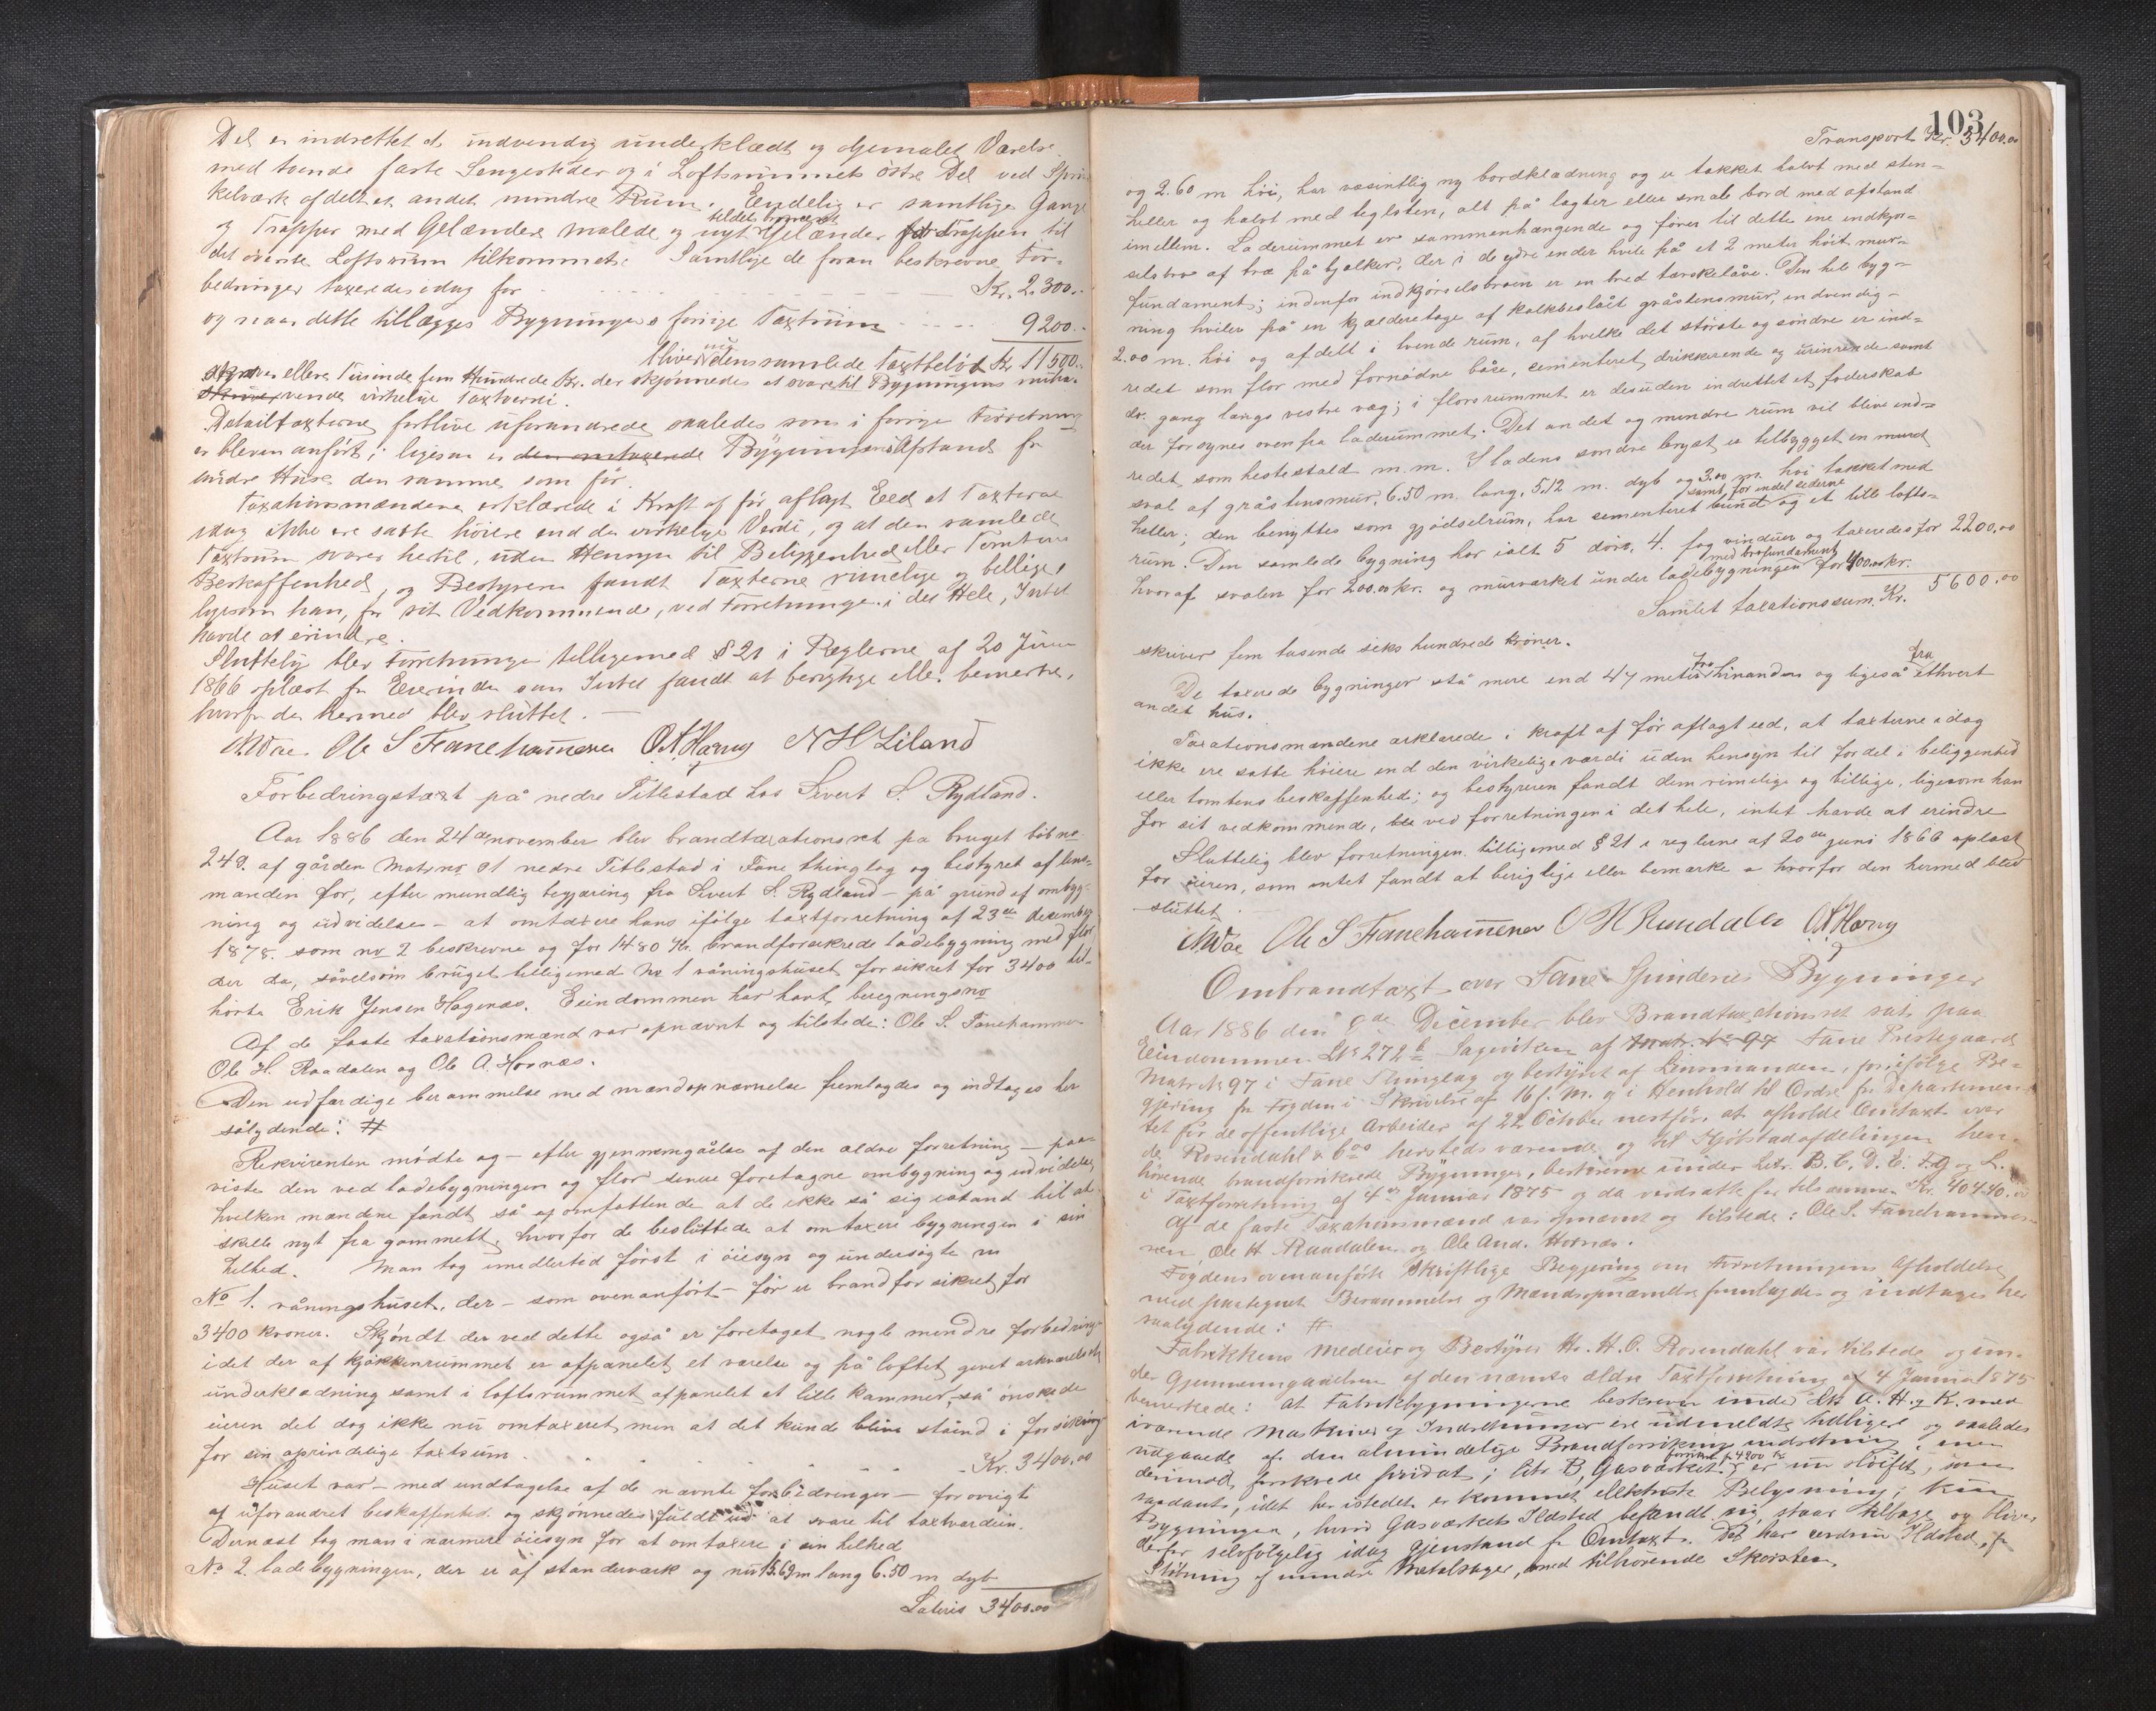 Del er indrettet et indvendig underklædt og Gemalet Værelse
med tvende faste Sengesteder og i Loftsrummets østre Del ved Sprin
kelværk afdelt et andet mindre Rum. Endelig er samtlige Gange
og Trapper med Gelændere malede og nyt Gelænder for Trappen til
det øverste Loftsrum tilkommet. Samtlige de foran beskrevne For-
bedringer taxeredes idag for Kr. 2.300.-
og naar dette tillægges Bygningens forrige Taxtsum 9200.-
bliver nu dens samlede Taxtbeløb Kr 11500.-
elleve Tusinde fem Hundrede Kr. der skjønnedes at svare til Bygningens nuhæ-
vende virkelige Taxtværdi.
Detailtaxterne forblive uforandrede saaledes som i forrige Forretning
er bleven anført; ligesom er Bygningens Afstand fra
andre Huse den samme som før.
Taxationsmændene erklærede i Kraft af før aflagt Eed at Taxterne
idag ikke ere satte høiere end den virkelige Værdi, og at den samlede
Taxtsum svarer hertil, uden Hensyn til Beliggenhed eller Tomtens
Beskaffenhed, og Bestyreren fandt Taxterne rimelige og billige,
ligesom han, for sit Vedkommende, ved Forretningen i det Hele, Intet
havde at erindre.
Sluttelig blev Forretningen tilligemed § 21 i Reglerne af 20 Juni
1866 oplæst for Eierinden som Intet fandt at berigtige eller bemærke,
hvorfor den hermed blev sluttet.
Ole S Fanehammeren O. A. Hornæs N H Liland
Forbedringstaxt på nedre Titlestad hos Sivert S. Rydland.
Aar 1886 den 24de november blev brandtaxationsret på bruget løbno
249. af gården Matrno 91 nedre Titlestad i Fane thinglag og bestyret af lens-
manden for, efter mundtlig begjæring fra Sivert S. Rydland – på grund af ombyg-
ning og udvidelse – at omtaxere hans ifølge taxtforretning af 23de december
1878 som no 2 beskrevne og for 1480 Kr. brandforsikrede ladebygning med flor
der da, såvelsom bruget tilligemed No 1 våningshuset, forsikret for 3400 til-
hørte Erik Jensen Hagenæs. Eiendommen har havt beregningsno
Af de faste taxationsmænd var opnævnt og tilstede: Ole S. Fanehammer
Ole H. Raadalen og Ole A. Hornæs.
Den udfærdige berammelse med mændsopnævnelse fremlagdes og indtages her
sålydende: #
Rekvirenten mødte og – efter gjennemgåelse af den ældre forretning – paa-
viste den ved ladebygningen og flor senere foretagne ombygning og udvidelse,
hvilken mændene fandt så omfattende at de ikke så sig istand til at
skille nyt fra gammelt, hvorfor de besluttede at omtaxere bygningen i sin
helhed. Man tog imedlertid først i øiesyn og undersøgte
No 1. våningshuset, der – som ovenanført – før er brandforsikret for
3400 kroner. Skjøndt der ved dette også er foretaget nogle mindre forbedring
idet der af kjøkkenrummet er afpanelet et værelse og på loftet givet arkværelset
underklædning samt i loftsrummet afpanelet et lille kammer, så ønskede
eieren det dog ikke nu omtaxeret, men at det kunde blive stående i forsikring
for sin oprindelige taxtsum. Kr. 3400.00
Huset var – med undtagelse af de nævnte forbedringer – forøvrigt
af uforandret beskaffenhed og skjønnedes fuldt ud at svare til taxtværdien.
Dernæst tog man i nærmere øiesyn for at omtaxere i sin helhed
No 2. ladebygningen, der er af standerværk og nu 15.69 m lang 6.50 m dyb
Lateris 3400.00
103
Transport Kr. 3400.00
og 2.60 m høi, har væsintlig ny bordklædning og er takket halvt med sten-
heller og halvt med teglsten, alt på lægter eller smale bord med afstand
imellem. Laderummet er sammenhængende og fører til dette ene indkjør-
selsbro af træ på bjælker, der i de ydre ender hvile på et 2 meter høit mur-
fundament; indenfor indkjørselsbroen er en bred tærskelåve. Den hele byg-
ning hviler på en kjælderetage af kalkbeslået gråstensmur, indvendig
2.00 m. høi og afdelt i tvende rum, af hvilke det største og søndre er ind-
redet som flor med fornødne båse, cementeret drikkerende og urinrende samt
do. gang langs vestre væg; i florsrummet er desuden indrettet et foderskab
der forsynes ovenfra laderummet. Det andet og mindre rum vil blive ind-
redet som hestestald m.m. I ladens søndre bryst er tilbygget en
sval af gråstensmur, 6.50 m. lang, 5.12 m. dyb og 3.00 m. høi takket med
heller; den benyttes som gjødselrum, har cementeret bund samt for endel siderne og et lille lofts-
rum. Den samlede bygning har ialt 5 døre, 4. fag vinduer og taxeredes for 2200.00
hvoraf svalen for 200.00 kr. og murværket under ladebygningen med brofundament for 400.00 kr.
Samlet taxationssum Kr. 5600.00
skriver fem tusende seks hundrede kroner.
De taxerede bygninger stå mere end 47 meter fra hinanden og ligeså fra ethvert
andet hus.
Taxationsmændene erklærede i kraft af før aflagt eed, at taxterne idag
ikke ere satte høiere end den virkelige værdi uden hensyn til fordel i beliggenhed
eller tomtens beskaffenhed; og bestyreren fandt dem rimelige og billige, ligesom han
for sit vedkommende, ved forretningen i det hele, intet havde at erindre
Sluttelig blev forretningen tilligemed § 21 i reglerne af 20de juni 1866 oplæst
for eieren, som intet fandt at berigtige eller bemærke hvorfor den hermed blev
sluttet.
Ole S Fanehammeren O H Raadalen O A Hornæs
Ombrandtaxt over Fane Spinderies Bygninger
Aar 1886 den 9de December blev Brandtaxationsret sat paa
Eiendommen LNr 272b Sageviken af Matr. No 97 Fane Prestegaard
Matr No 97 i Fane Thinglag og bestyret af Lensmanden, for ifølge Be-
gjæring fra Fogden i Skrivelse af 16 f. M. og i Henhold til Ordre fra Departemen-
tet for de offentlige Arbeider af 22 October nestfør, at afholde Omtaxt over
de Rosendahl & Co hersteds værende og til Hjelstadafdelingen hen-
hørende brandforsikrede Bygninger, beskrevne under Litr. B. C. D. E. F. G og L.
i Taxtforretning af 4de Januar 1875 og da værdsatte for tilsammen Kr. 40440.00
Af de faste Taxationsmænd var opnævnt og tilstede: Ole S. Fanehamme-
ren Ole H Raadalen og Ole And. Hornæs.
Fogdens ovenanførte Skriftlige Begjæring om Forretningens Afholdelse
med paategnet Berammelse og Mændsopnævnelse fremlagdes og indtages her
saalydende: #
Fabrikkens Medeier og Bestyrer Hr. H. O. Rosendahl var tilstede og un-
der Gjennemgaaelsen af den nævnte ældre Taxtforretning af 4 Januar 1875
bemærkede: at Fabrikbygningerne beskrevne under Litr A. H. og K. med
iværende Maskiner og Indretninger ere udmeldte tidligere og saaledes
udgaaede af den almindelige Brandforsikringsindretning, men
derimod forsikrede privat; litr B, Gasværket, forsikret f. 4200 Kr er nu sløifet, som
saadant, idet her istedet er kommet elektrisk Belysning; kun
Bygningen, hvori Gasværkets Ildsted befandt sig, staar tilbage og bliver
derfor selvfølgelig idag Gjenstand for Omtaxt. Det har endnu Ildsted, for
Støbning af mindre Metalsager, med tilhørende Skorsten.